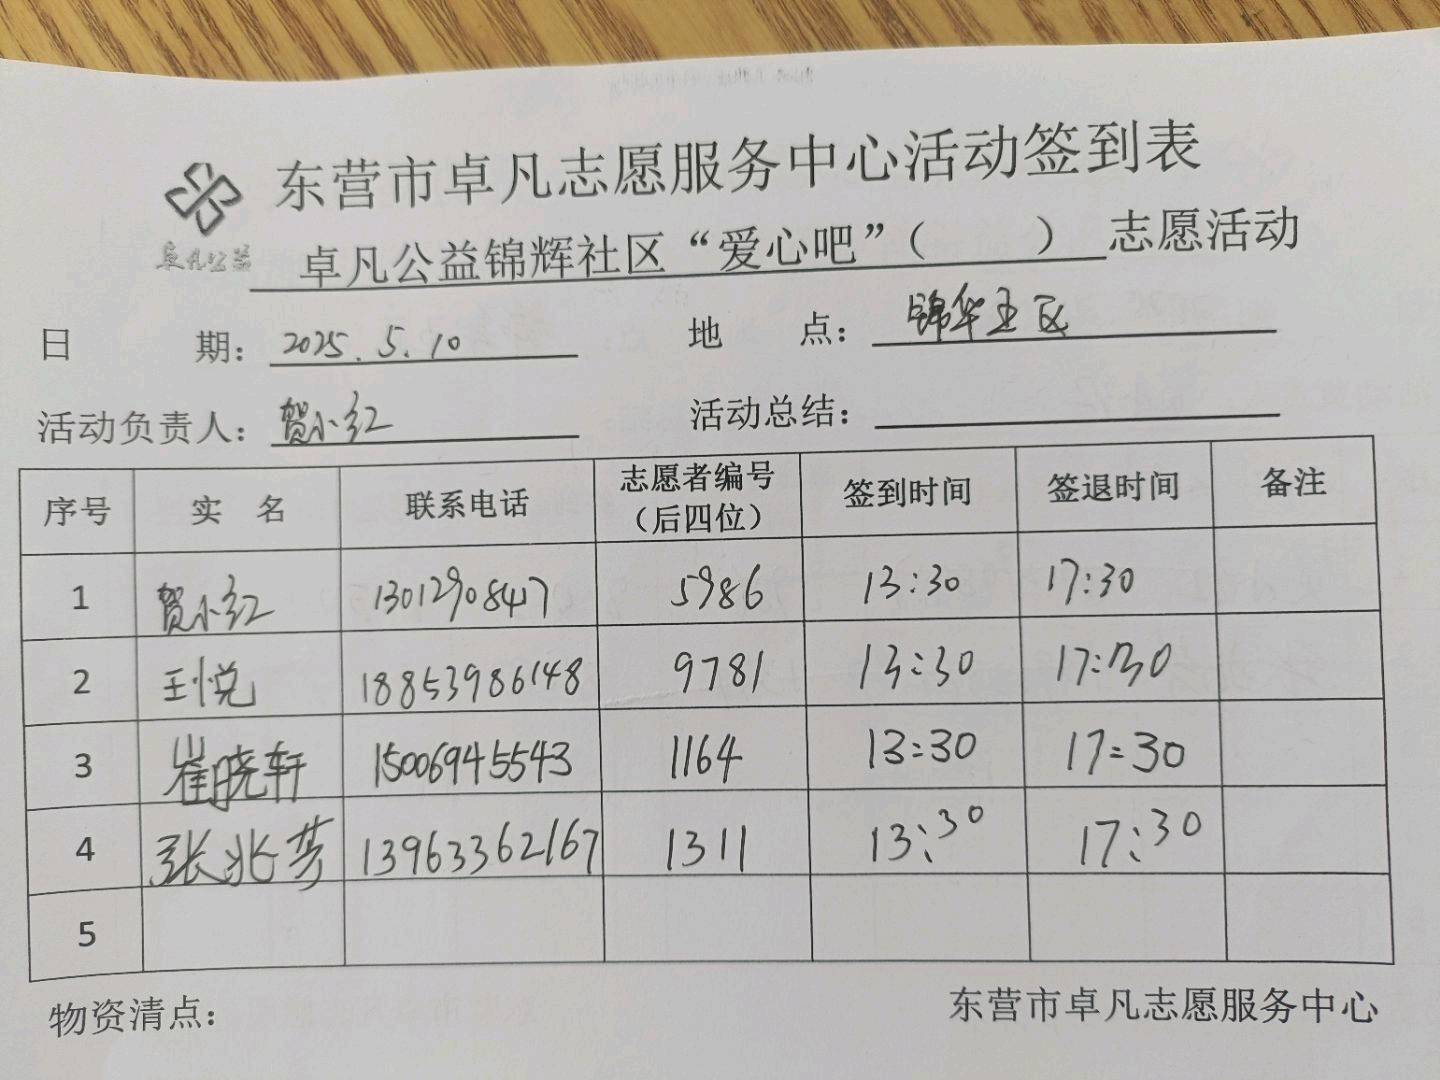 东营市卓凡志愿服务中心活动签到表
卓凡公益
卓凡公益锦辉社区“爱心吧”（ ）志愿活动
日 期：2025.5.10 地 点：锦华五区
活动负责人：贺小红 活动总结：
序号 实 名 联系电话 志愿者编号（后四位） 签到时间 签退时间 备注
1 贺小红 13012908417 5986 13:30 17:30
2 王悦 18853986148 9781 13:30 17:30
3 崔晓轩 15006945543 1164 13:30 17:30
4 张兆芳 13963362167 1311 13:30 17:30
5
物资清点： 东营市卓凡志愿服务中心